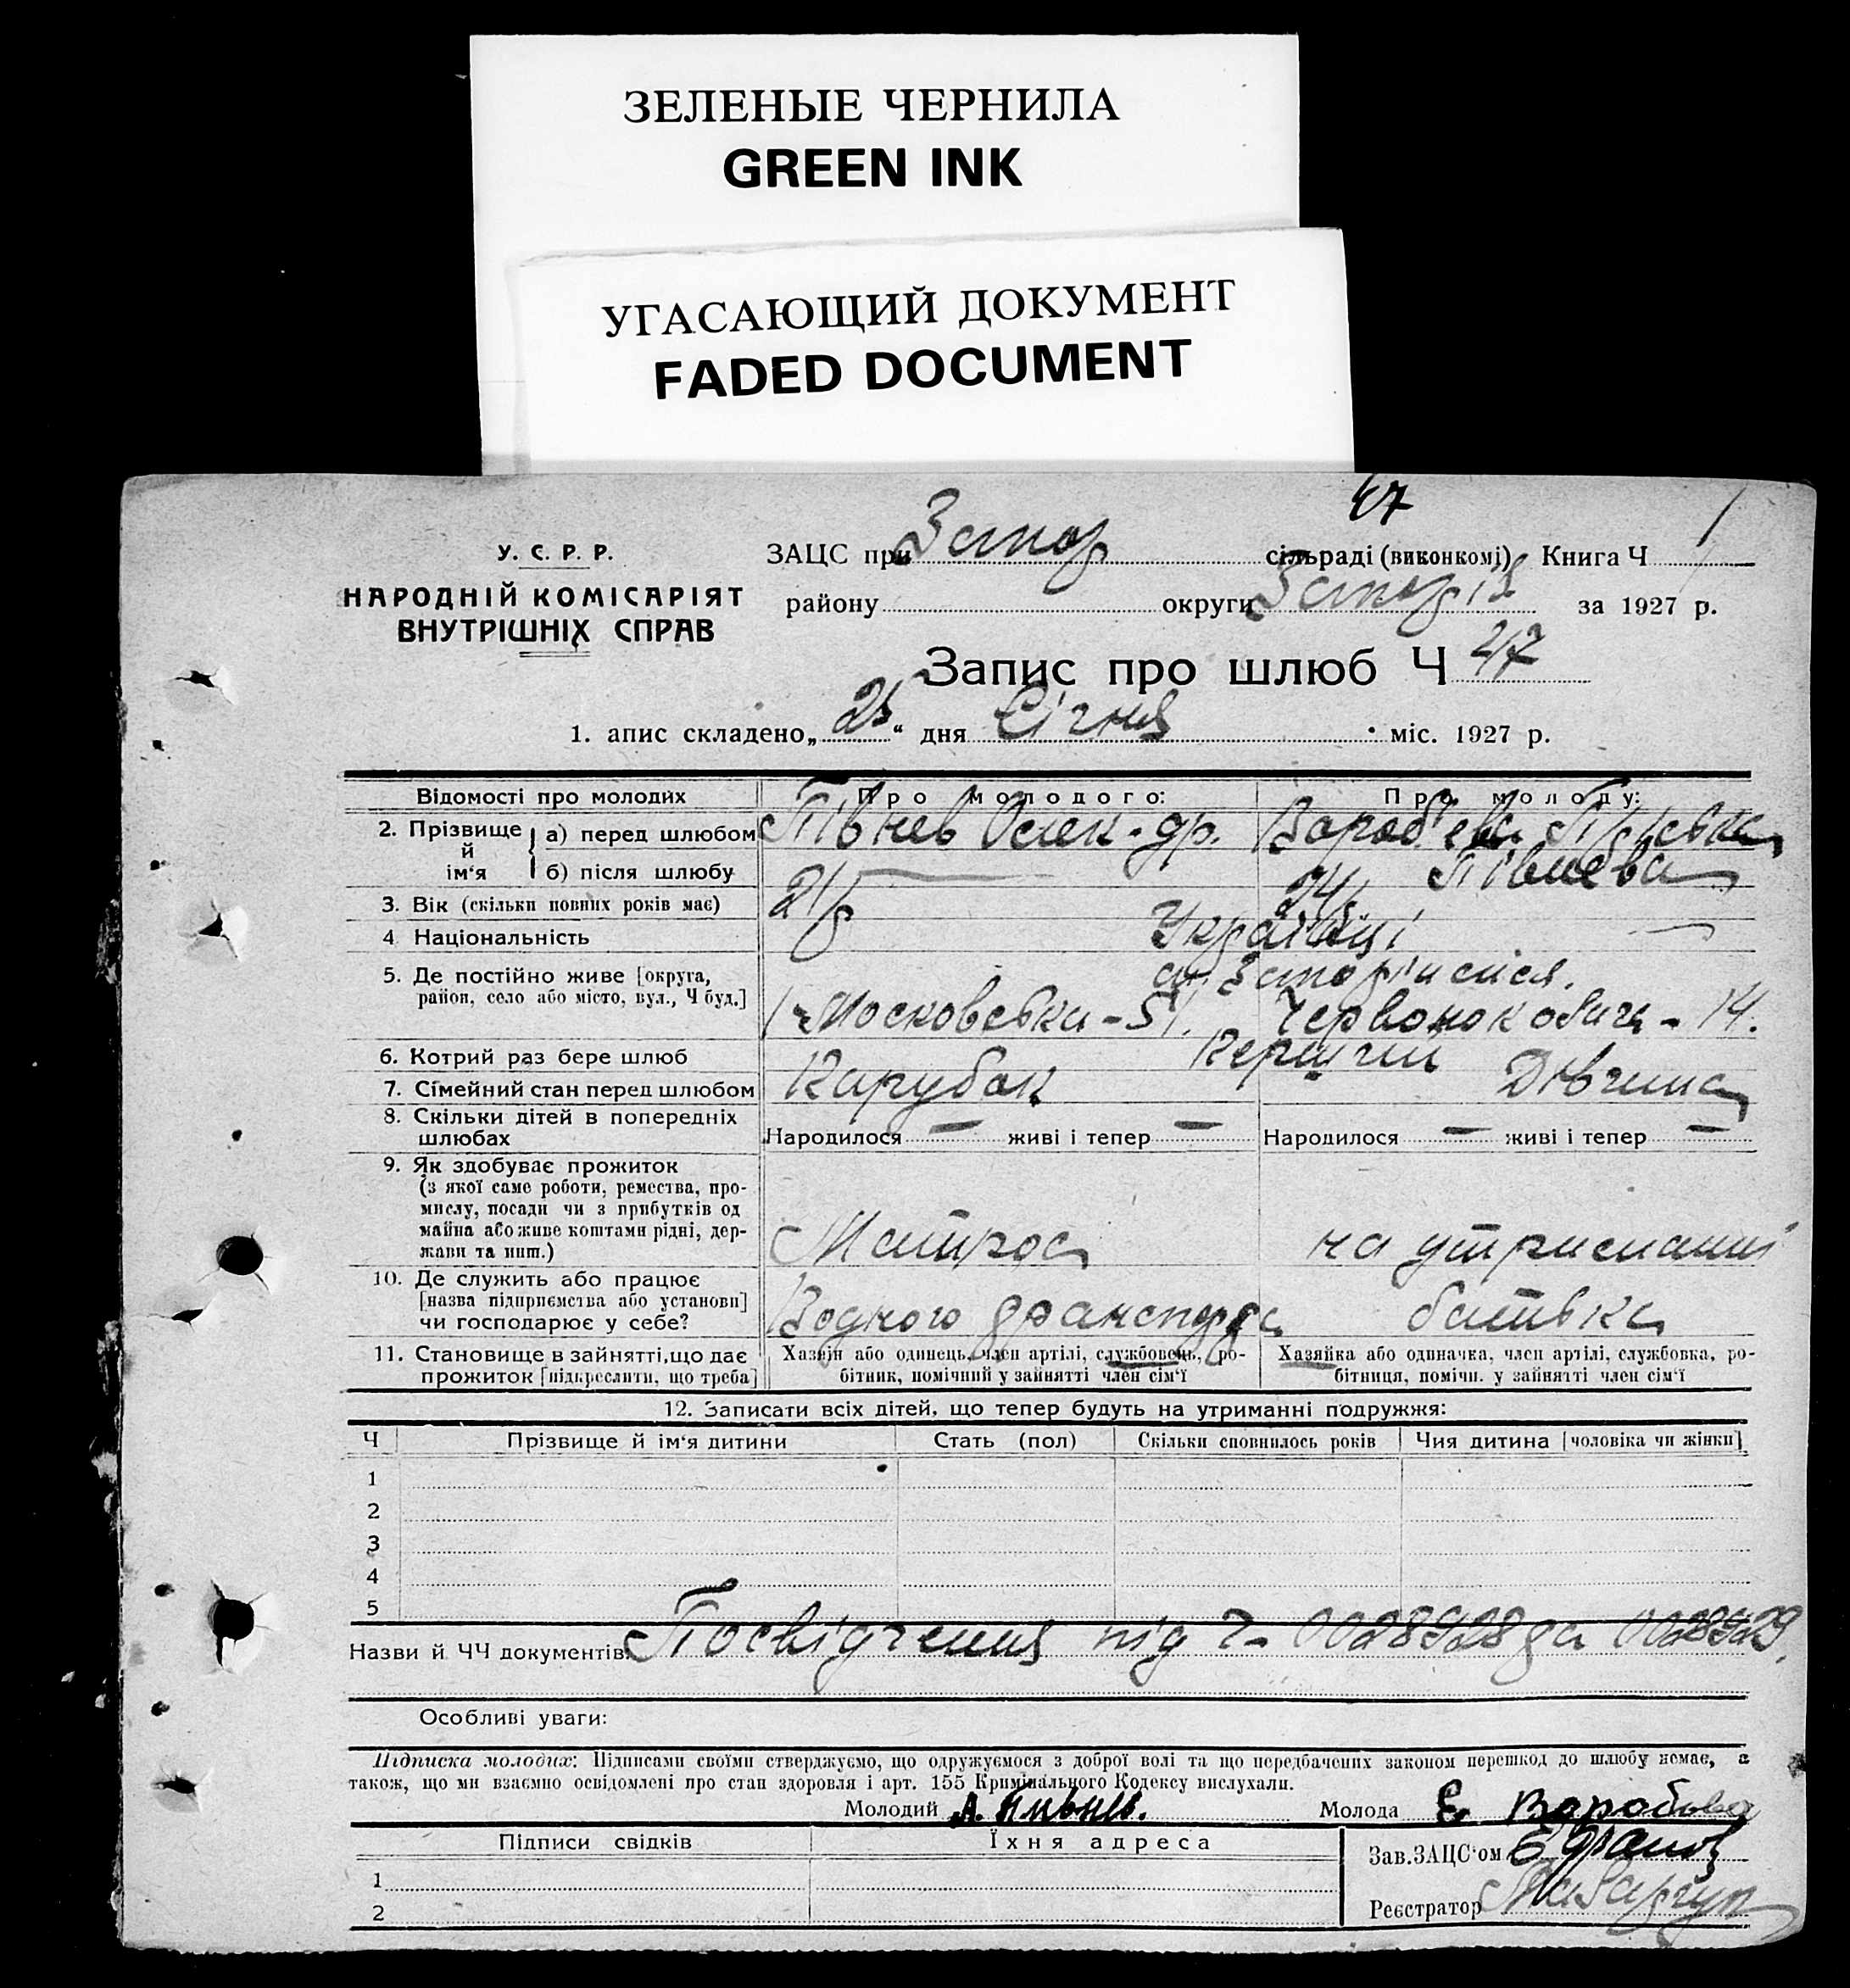 ЗЕЛЕНЫЕ ЧЕРНИЛА
GREEN INK
УГАСАЮЩИЙ ДОКУМЕНТ
FADED DOCUMENT
47
У. С. Р. Р.
НАРОДНІЙ КОМІСАРІЯТ
ВНУТРІШНІХ СПРАВ
ЗАЦС при Запор сільраді (виконкомі) Книга Ч 1
району округи за 1927 р.
Запис про шлюб Ч 47
1. апис складено „25“ дня Січня міс. 1927 р.
Відомості про молодих Про молодого: Про молоду:
2. Прізвище й ім'я а) перед шлюбом Півнев Олек-др. Вороб'ева
б) після шлюбу — Півнева
3. Вік (скільки повних років має) 21 24
4 Національність Українці
5. Де постійно живе [округа, район, село або місто, вул., Ч буд.] м. Запоріжжя.
Московська - 51.
6. Котрий раз бере шлюб Перший
7. Сімейний стан перед шлюбом Парубок Дівчина
8. Скільки дітей в попередніх шлюбах Народилося — живі і тепер — Народилося — живі і тепер —
9. Як здобуває прожиток
(з якої саме роботи, ремества, про-
мислу, посади чи з прибутків од
майна або живе коштами рідні, дер-
жави та инш.) Матрос на утриманні
10. Де служить або працює
[назва підприємства або установи]
чи господарює у себе? Водного транспорта батька
11. Становище в зайнятті, що дає Хазяїн або одинець, член артілі, службовець, ро- Хазяйка або одиначка, член артілі, службовка, ро-
прожиток [підкреслити, що треба] бітник, помічний у зайнятті член сім'ї бітниця, помічн. у зайнятті член сім'ї
12. Записати всіх дітей, що тепер будуть на утриманні подружжя:
Ч Прізвище й ім'я дитини Стать (пол) Скільки сповнилось років Чия дитина [чоловіка чи жінки]
1
2
3
4
5
Назви й ЧЧ документів: Посвідчення під Ч- 0028928 да 0028929.
Особливі уваги:
Підписка молодих: Підписами своїми стверджуємо, що одружуємося з доброї волі та що передбачених законом перешкод до шлюбу немає, а
також, що ми взаємно освідомлені про стан здоровля і арт. 155 Кримінального Кодексу вислухали.
Молодий А. Пивнев. Молода Е. Воробьева
Підписи свідків Їхня адреса Зав. ЗАЦС'ом
1
2 Реєстратор